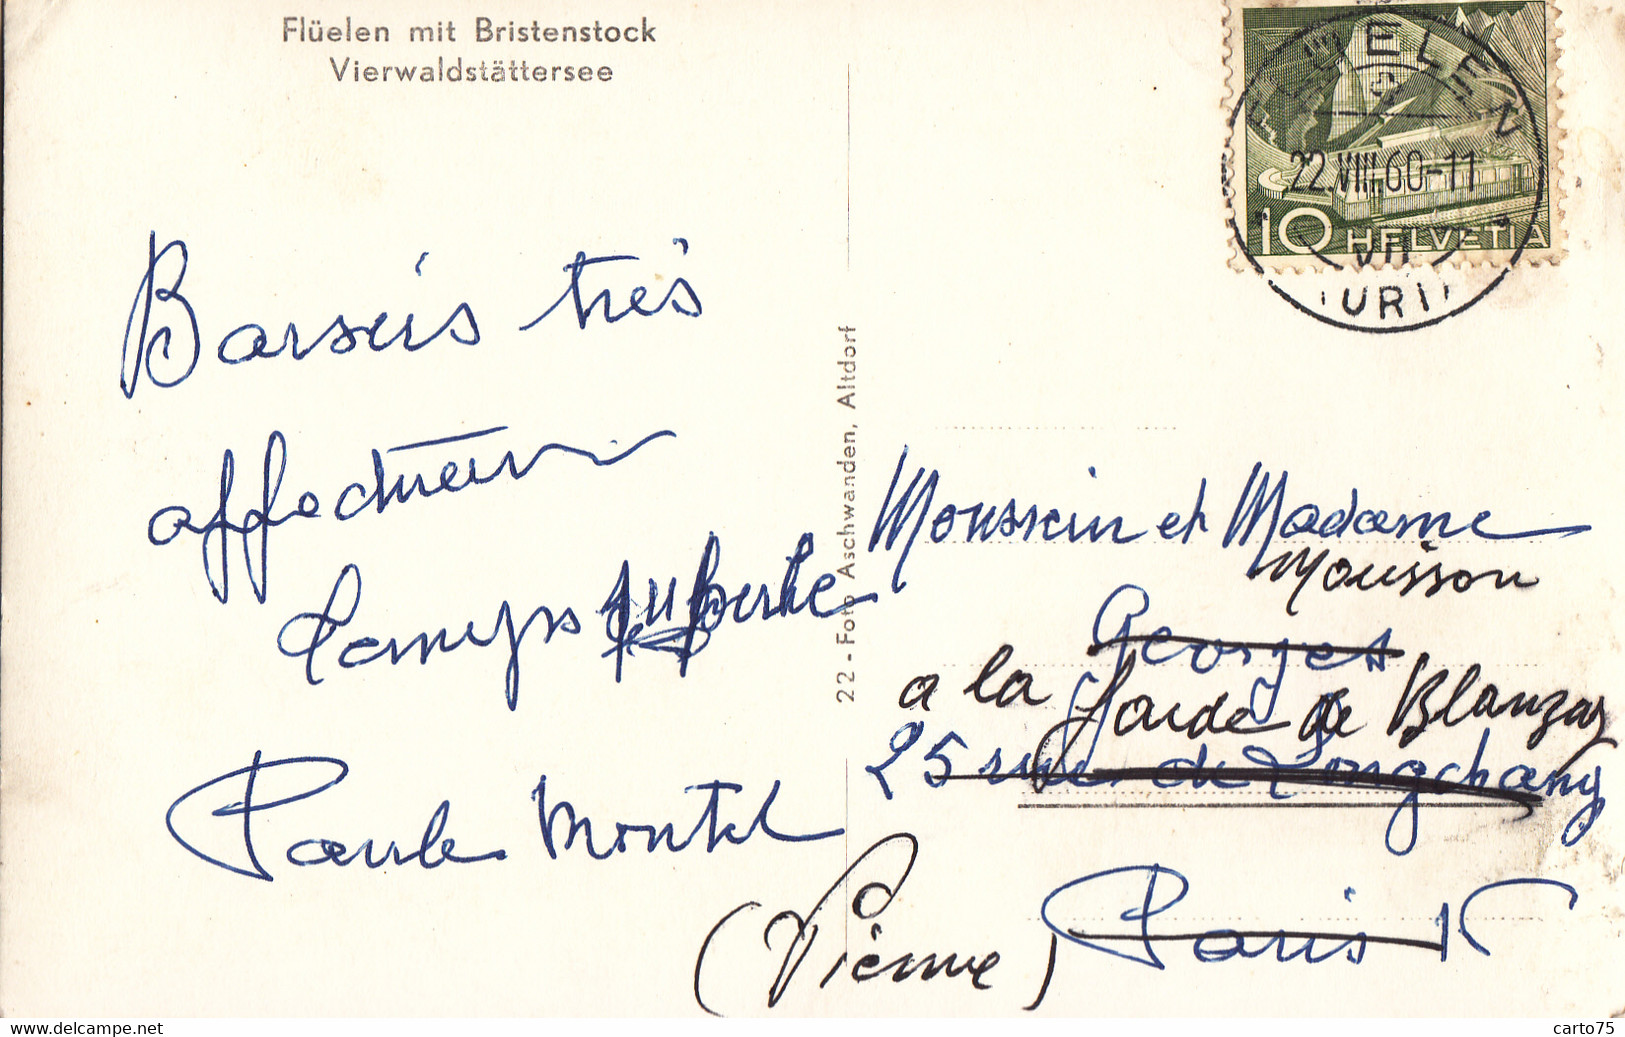 Flüelen mit Bristenstock
Vierwaldstättersee
Baisers très
affectueux
Temps superbe
Paule Montel
22 - Foto Aschwanden, Altdorf
FLÜELEN
22.VIII.60-11
(URI)
10 HELVETIA
Monsieur et Madame
Mousson
Georges
a la de Blanzay
25 rue de Longchamp
(Vienne)
Paris 16
carto75